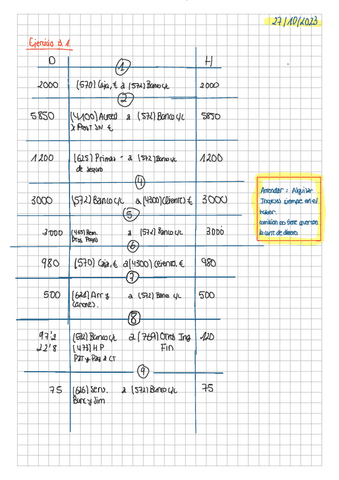 27/10/2023
Ejercicio 3.1
D H
1
2000 (570) Caja, € a (572) Banco c/c 2000
2
5850 (4100) Acreed a (572) Banco c/c 5850
x Prest SN €
1200 (625) Primas - a (572) Banco c/c 1200
de seguro
4
3000 (572) Banco c/c a (4300) Clientes € 3000
5
3000 (465) Rem. a (572) Banco c/c 3000
Dtas Pago
6
980 (570) Caja, € a (4300) Clientes, € 980
7
500 (621) Arr y a (572) Banc c/c 500
canones.
8
97'2 (572) Banco c/c a (769) Otros Ing 120
22'8 (473) H.P Fin
RET y Pag a CT
9
75 (626) Serv. a (572) Banco c/c 75
Banc y Sim
Arrendar: Alquilar
Ingresos siempre en el
haber.